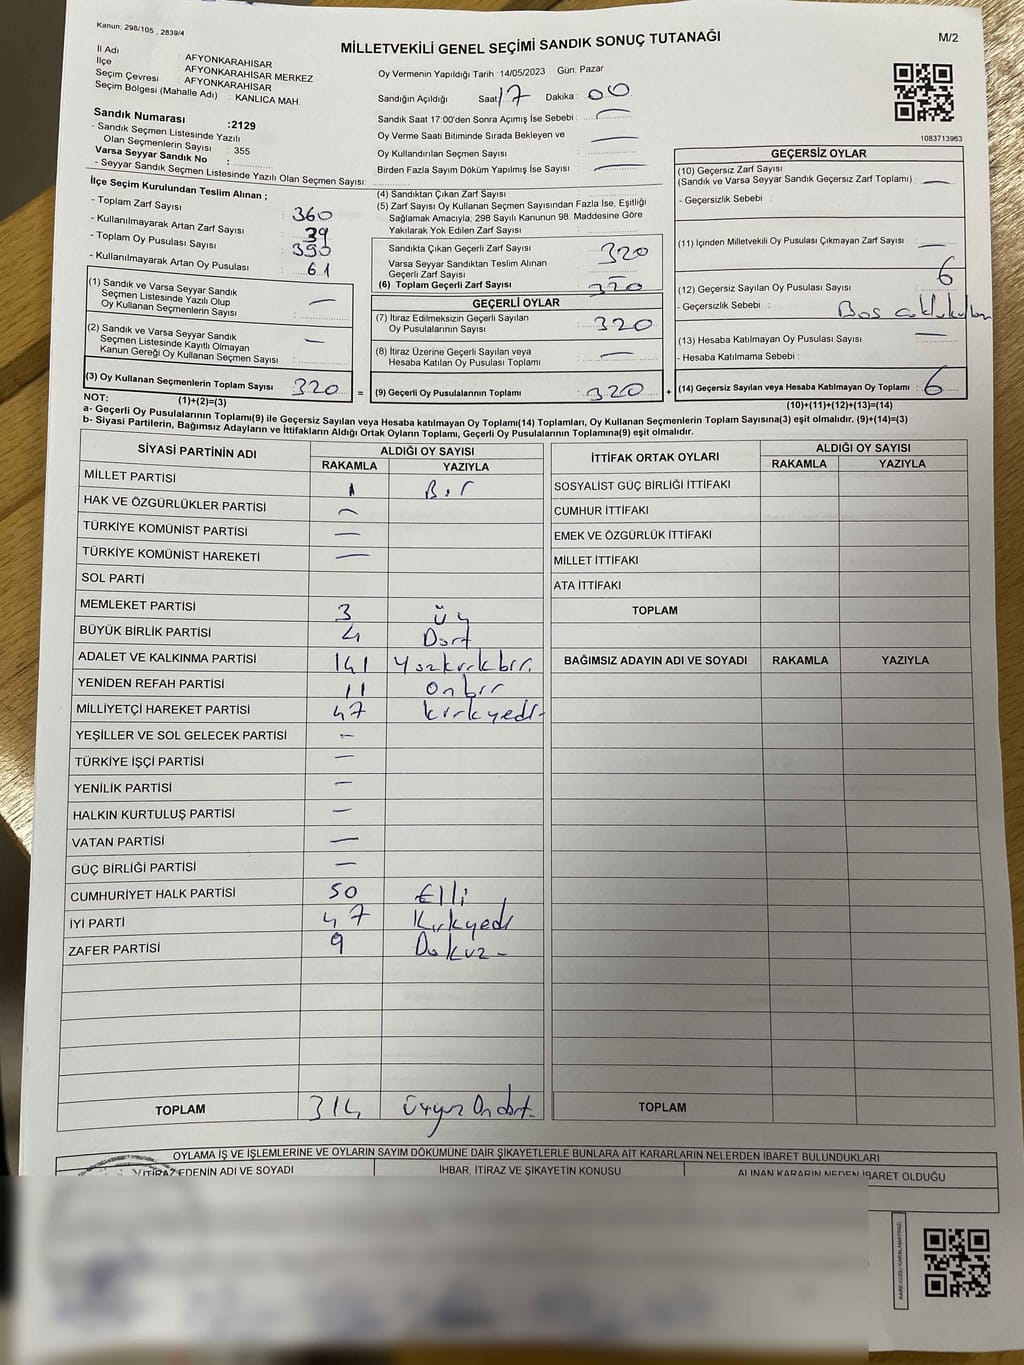 Kanun: 298/105 , 2839/4
MİLLETVEKİLİ GENEL SEÇİMİ SANDIK SONUÇ TUTANAĞI
M/2
İl Adı : AFYONKARAHİSAR
İlçe : AFYONKARAHİSAR MERKEZ
Seçim Çevresi : AFYONKARAHİSAR
Seçim Bölgesi (Mahalle Adı) : KANLICA MAH.
Sandık Numarası :2129
- Sandık Seçmen Listesinde Yazılı
Olan Seçmenlerin Sayısı : 355
Varsa Seyyar Sandık No :
- Seyyar Sandık Seçmen Listesinde Yazılı Olan Seçmen Sayısı:
İlçe Seçim Kurulundan Teslim Alınan ;
- Toplam Zarf Sayısı : 360
- Kullanılmayarak Artan Zarf Sayısı : 39
- Toplam Oy Pusulası Sayısı : 390
- Kullanılmayarak Artan Oy Pusulası : 61
(1) Sandık ve Varsa Seyyar Sandık
Seçmen Listesinde Yazılı Olup
Oy Kullanan Seçmenlerin Sayısı : —
(2) Sandık ve Varsa Seyyar Sandık
Seçmen Listesinde Kayıtlı Olmayan
Kanun Gereği Oy Kullanan Seçmen Sayısı : —
(3) Oy Kullanan Seçmenlerin Toplam Sayısı : 320 =
(1)+(2)=(3)
Oy Vermenin Yapıldığı Tarih :14/05/2023 Gün: Pazar
Sandığın Açıldığı Saat: 17 Dakika : 00
Sandık Saat 17:00'den Sonra Açımış İse Sebebi : —
Oy Verme Saati Bitiminde Sırada Bekleyen ve
Oy Kullandırılan Seçmen Sayısı : —
Birden Fazla Sayım Döküm Yapılmış İse Sayısı : —
(4) Sandıktan Çıkan Zarf Sayısı :
(5) Zarf Sayısı Oy Kullanan Seçmen Sayısından Fazla İse, Eşitliği
Sağlamak Amacıyla; 298 Sayılı Kanunun 98. Maddesine Göre
Yakılarak Yok Edilen Zarf Sayısı :
Sandıkta Çıkan Geçerli Zarf Sayısı : 320
Varsa Seyyar Sandıktan Teslim Alınan
Geçerli Zarf Sayısı :
(6) Toplam Geçerli Zarf Sayısı : 320
GEÇERLİ OYLAR
(7) İtiraz Edilmeksizin Geçerli Sayılan
Oy Pusulalarının Sayısı : 320
(8) İtiraz Üzerine Geçerli Sayılan veya
Hesaba Katılan Oy Pusulası Toplamı : —
(9) Geçerli Oy Pusulalarının Toplamı : 320 +
1083713963
GEÇERSİZ OYLAR
(10) Geçersiz Zarf Sayısı
(Sandık ve Varsa Seyyar Sandık Geçersiz Zarf Toplamı) : —
- Geçersizlik Sebebi :
(11) İçinden Milletvekili Oy Pusulası Çıkmayan Zarf Sayısı : —
(12) Geçersiz Sayılan Oy Pusulası Sayısı : 6
- Geçersizlik Sebebi : Boş
(13) Hesaba Katılmayan Oy Pusulası Sayısı : —
- Hesaba Katılmama Sebebi :
(14) Geçersiz Sayılan veya Hesaba Katılmayan Oy Toplamı : 6
(10)+(11)+(12)+(13)=(14)
NOT:
a- Geçerli Oy Pusulalarının Toplamı(9) ile Geçersiz Sayılan veya Hesaba katılmayan Oy Toplamı(14) Toplamları, Oy Kullanan Seçmenlerin Toplam Sayısına(3) eşit olmalıdır. (9)+(14)=(3)
b- Siyasi Partilerin, Bağımsız Adayların ve İttifakların Aldığı Ortak Oyların Toplamı, Geçerli Oy Pusulalarının Toplamına(9) eşit olmalıdır.
SİYASİ PARTİNİN ADI ALDIĞI OY SAYISI
RAKAMLA YAZIYLA
MİLLET PARTİSİ 1 Bir
HAK VE ÖZGÜRLÜKLER PARTİSİ —
TÜRKİYE KOMÜNİST PARTİSİ —
TÜRKİYE KOMÜNİST HAREKETİ —
SOL PARTİ
MEMLEKET PARTİSİ 3 üç
BÜYÜK BİRLİK PARTİSİ 4 Dört
ADALET VE KALKINMA PARTİSİ 141 Yüzkırkbir.
YENİDEN REFAH PARTİSİ 11 Onbir
MİLLİYETÇİ HAREKET PARTİSİ 47 kırkyedi-
YEŞİLLER VE SOL GELECEK PARTİSİ —
TÜRKİYE İŞÇİ PARTİSİ —
YENİLİK PARTİSİ —
HALKIN KURTULUŞ PARTİSİ —
VATAN PARTİSİ —
GÜÇ BİRLİĞİ PARTİSİ —
CUMHURİYET HALK PARTİSİ 50 Elli
İYİ PARTİ 47 Kırkyedi
ZAFER PARTİSİ 9 Dokuz-
TOPLAM 314 üçyüz Ondört-
İTTİFAK ORTAK OYLARI ALDIĞI OY SAYISI
RAKAMLA YAZIYLA
SOSYALİST GÜÇ BİRLİĞİ İTTİFAKI
CUMHUR İTTİFAKI
EMEK VE ÖZGÜRLÜK İTTİFAKI
MİLLET İTTİFAKI
ATA İTTİFAKI
TOPLAM
BAĞIMSIZ ADAYIN ADI VE SOYADI RAKAMLA YAZIYLA
TOPLAM
OYLAMA İŞ VE İŞLEMLERİNE VE OYLARIN SAYIM DÖKÜMÜNE DAİR ŞİKAYETLERLE BUNLARA AİT KARARLARIN NELERDEN İBARET BULUNDUKLARI
İTİRAZ EDENİN ADI VE SOYADI İHBAR, İTİRAZ VE ŞİKAYETİN KONUSU ALINAN KARARIN NEDEN İBARET OLDUĞU